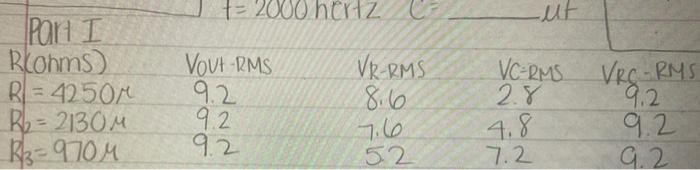 f = 2000 hertz C = ____ uf
Part I
R(ohms) VOUT-RMS VR-RMS VC-RMS VRC-RMS
R1 = 4250Ω 9.2 8.6 2.8 9.2
R2 = 2130Ω 9.2 7.6 4.8 9.2
R3 = 970Ω 9.2 5.2 7.2 9.2